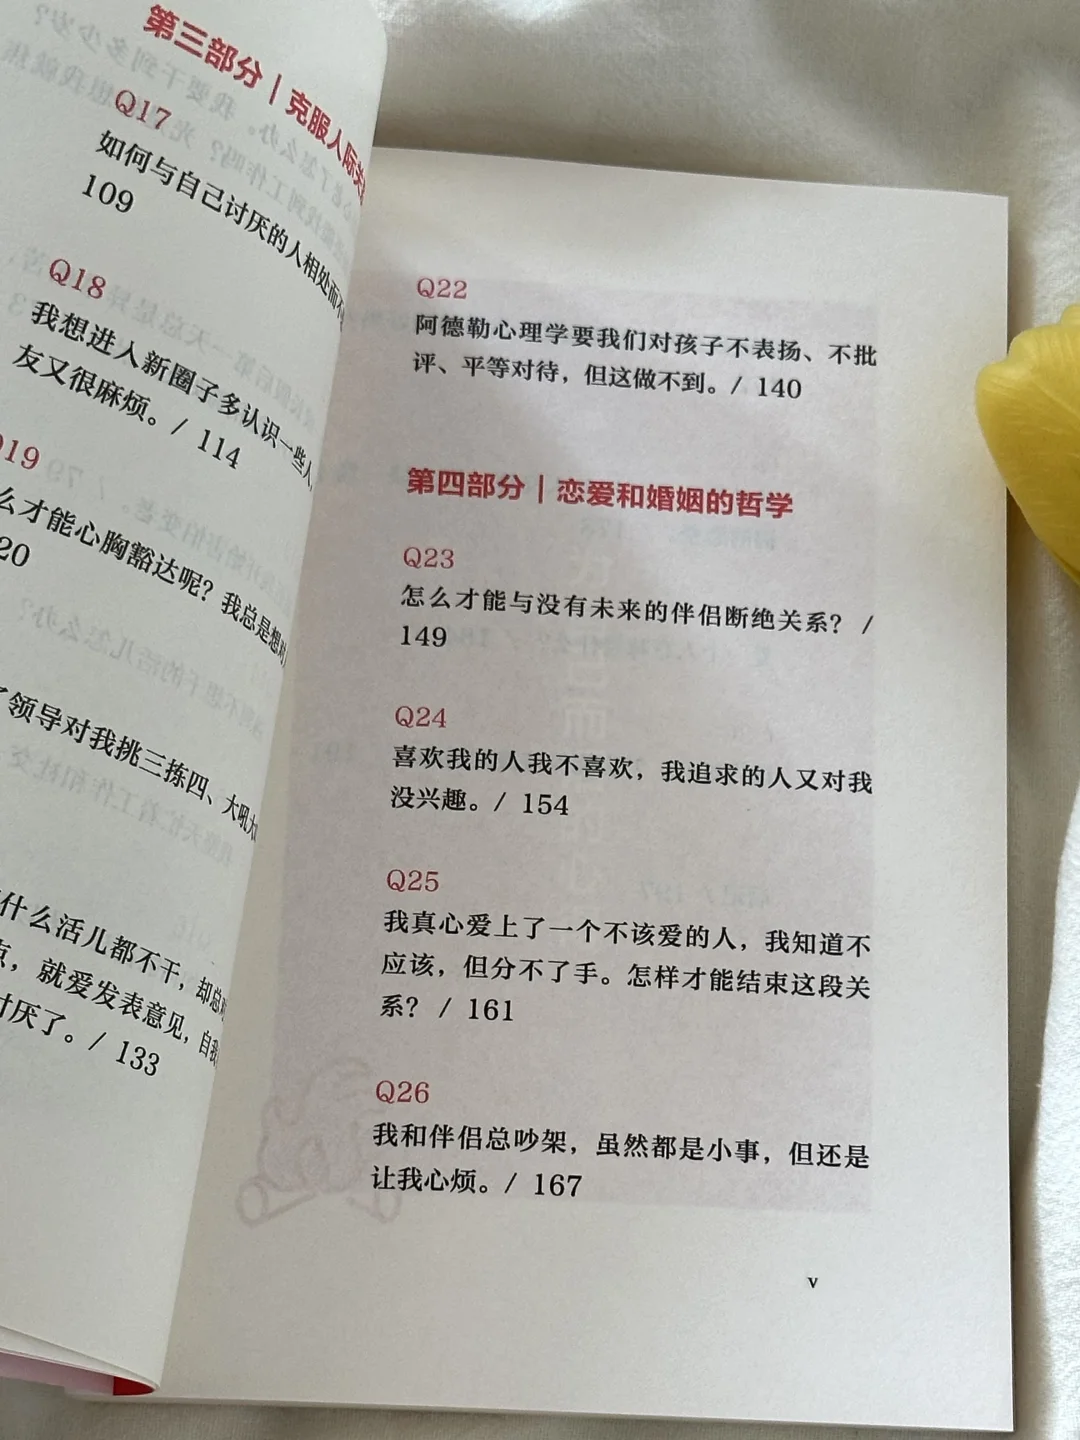 第三部分｜克服人际关
Q17
如何与自己讨厌的人相处而不
109
Q18
我想进入新圈子多认识一些人,
友又很麻烦。/ 114
19
么才能心胸豁达呢？我总是想
20
领导对我挑三拣四、大吼大
什么活儿都不干，却总
，就爱发表意见，自我
讨厌了。/ 133
Q22
阿德勒心理学要我们对孩子不表扬、不批
评、平等对待，但这做不到。/ 140
第四部分｜恋爱和婚姻的哲学
Q23
怎么才能与没有未来的伴侣断绝关系？ /
149
Q24
喜欢我的人我不喜欢，我追求的人又对我
没兴趣。/ 154
Q25
我真心爱上了一个不该爱的人，我知道不
应该，但分不了手。怎样才能结束这段关
系？ / 161
Q26
我和伴侣总吵架，虽然都是小事，但还是
让我心烦。/ 167
v